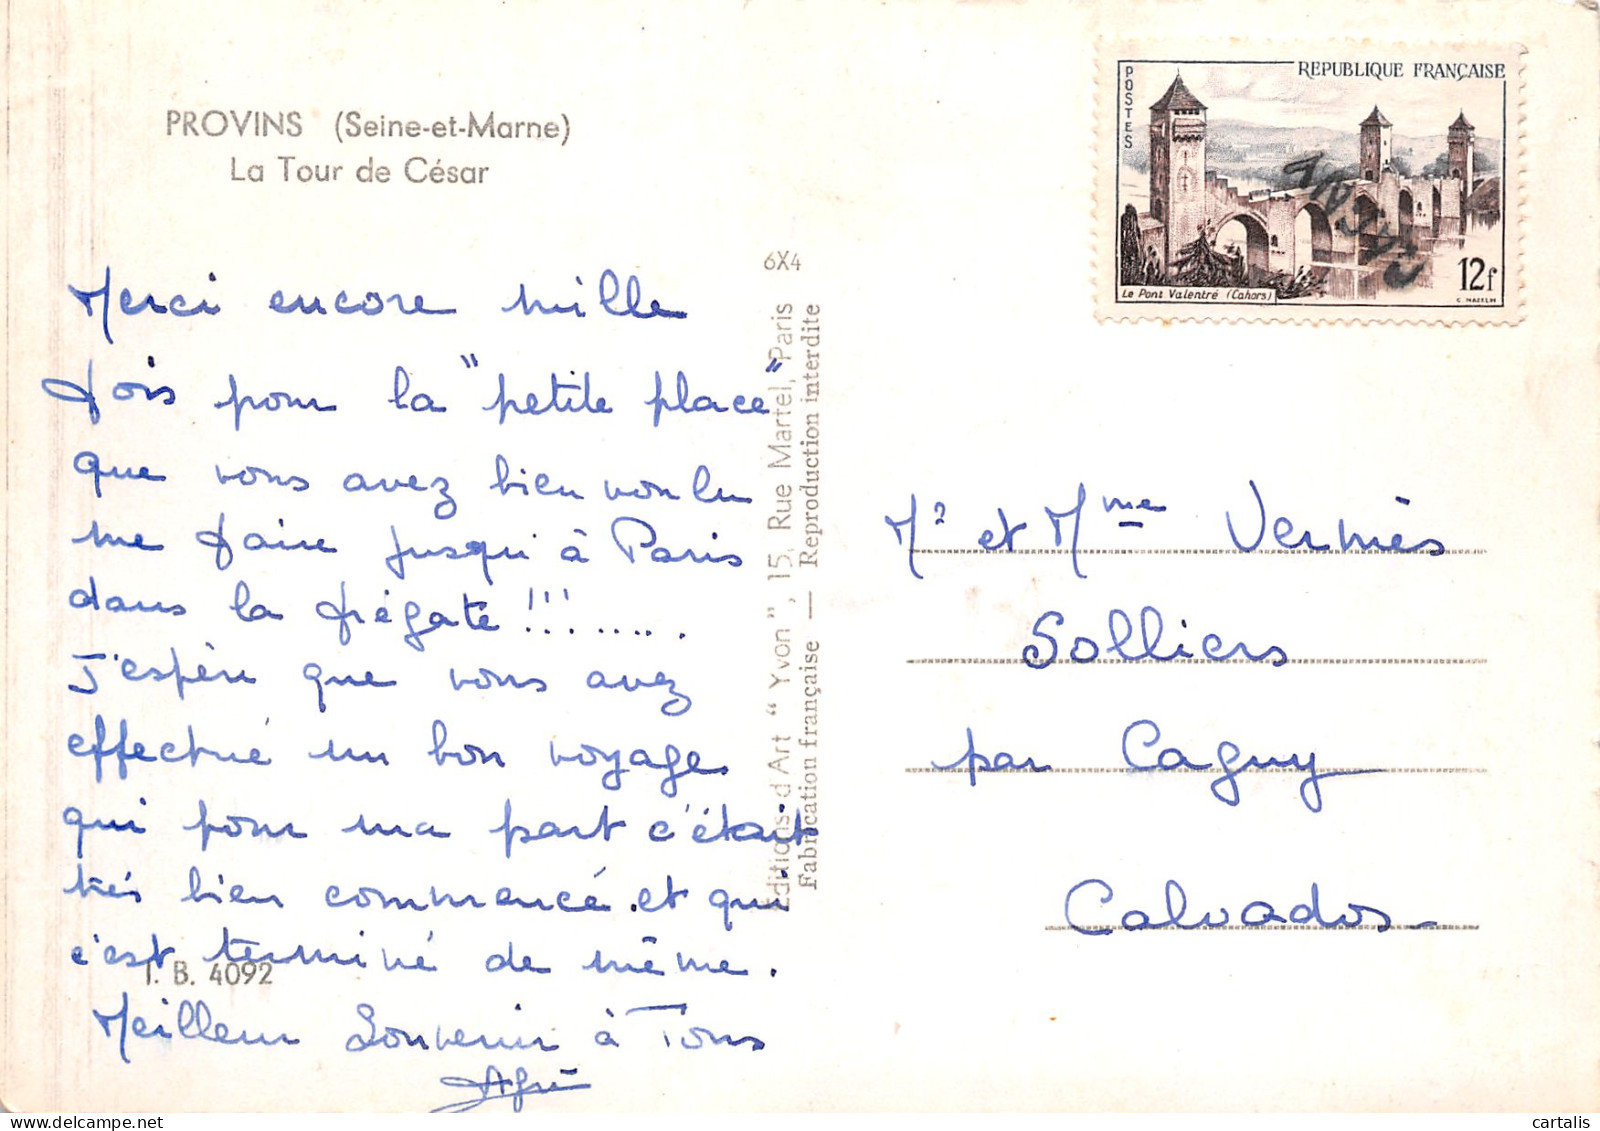 PROVINS (Seine-et-Marne)
La Tour de César
Merci encore mille
fois pour la "petite place"
que vous avez bien voulu
me faire jusqu'à Paris
dans la frégate !!!.......
J'espère que vous avez
effectué un bon voyage
qui pour ma part c'était
très bien commencé et qui
c'est terminé de même.
I. B. 4092
Meilleur Souvenir à Tous
6X4
Editions d'Art "Yvon", 15, Rue Martel, Paris
Fabrication française — Reproduction interdite
REPUBLIQUE FRANÇAISE
POSTES
Le Pont Valentré (Cahors)
12f
C. MAZELIN
Mr et Mme Vermès
Solliers
par Cagny
Calvados
cartalis